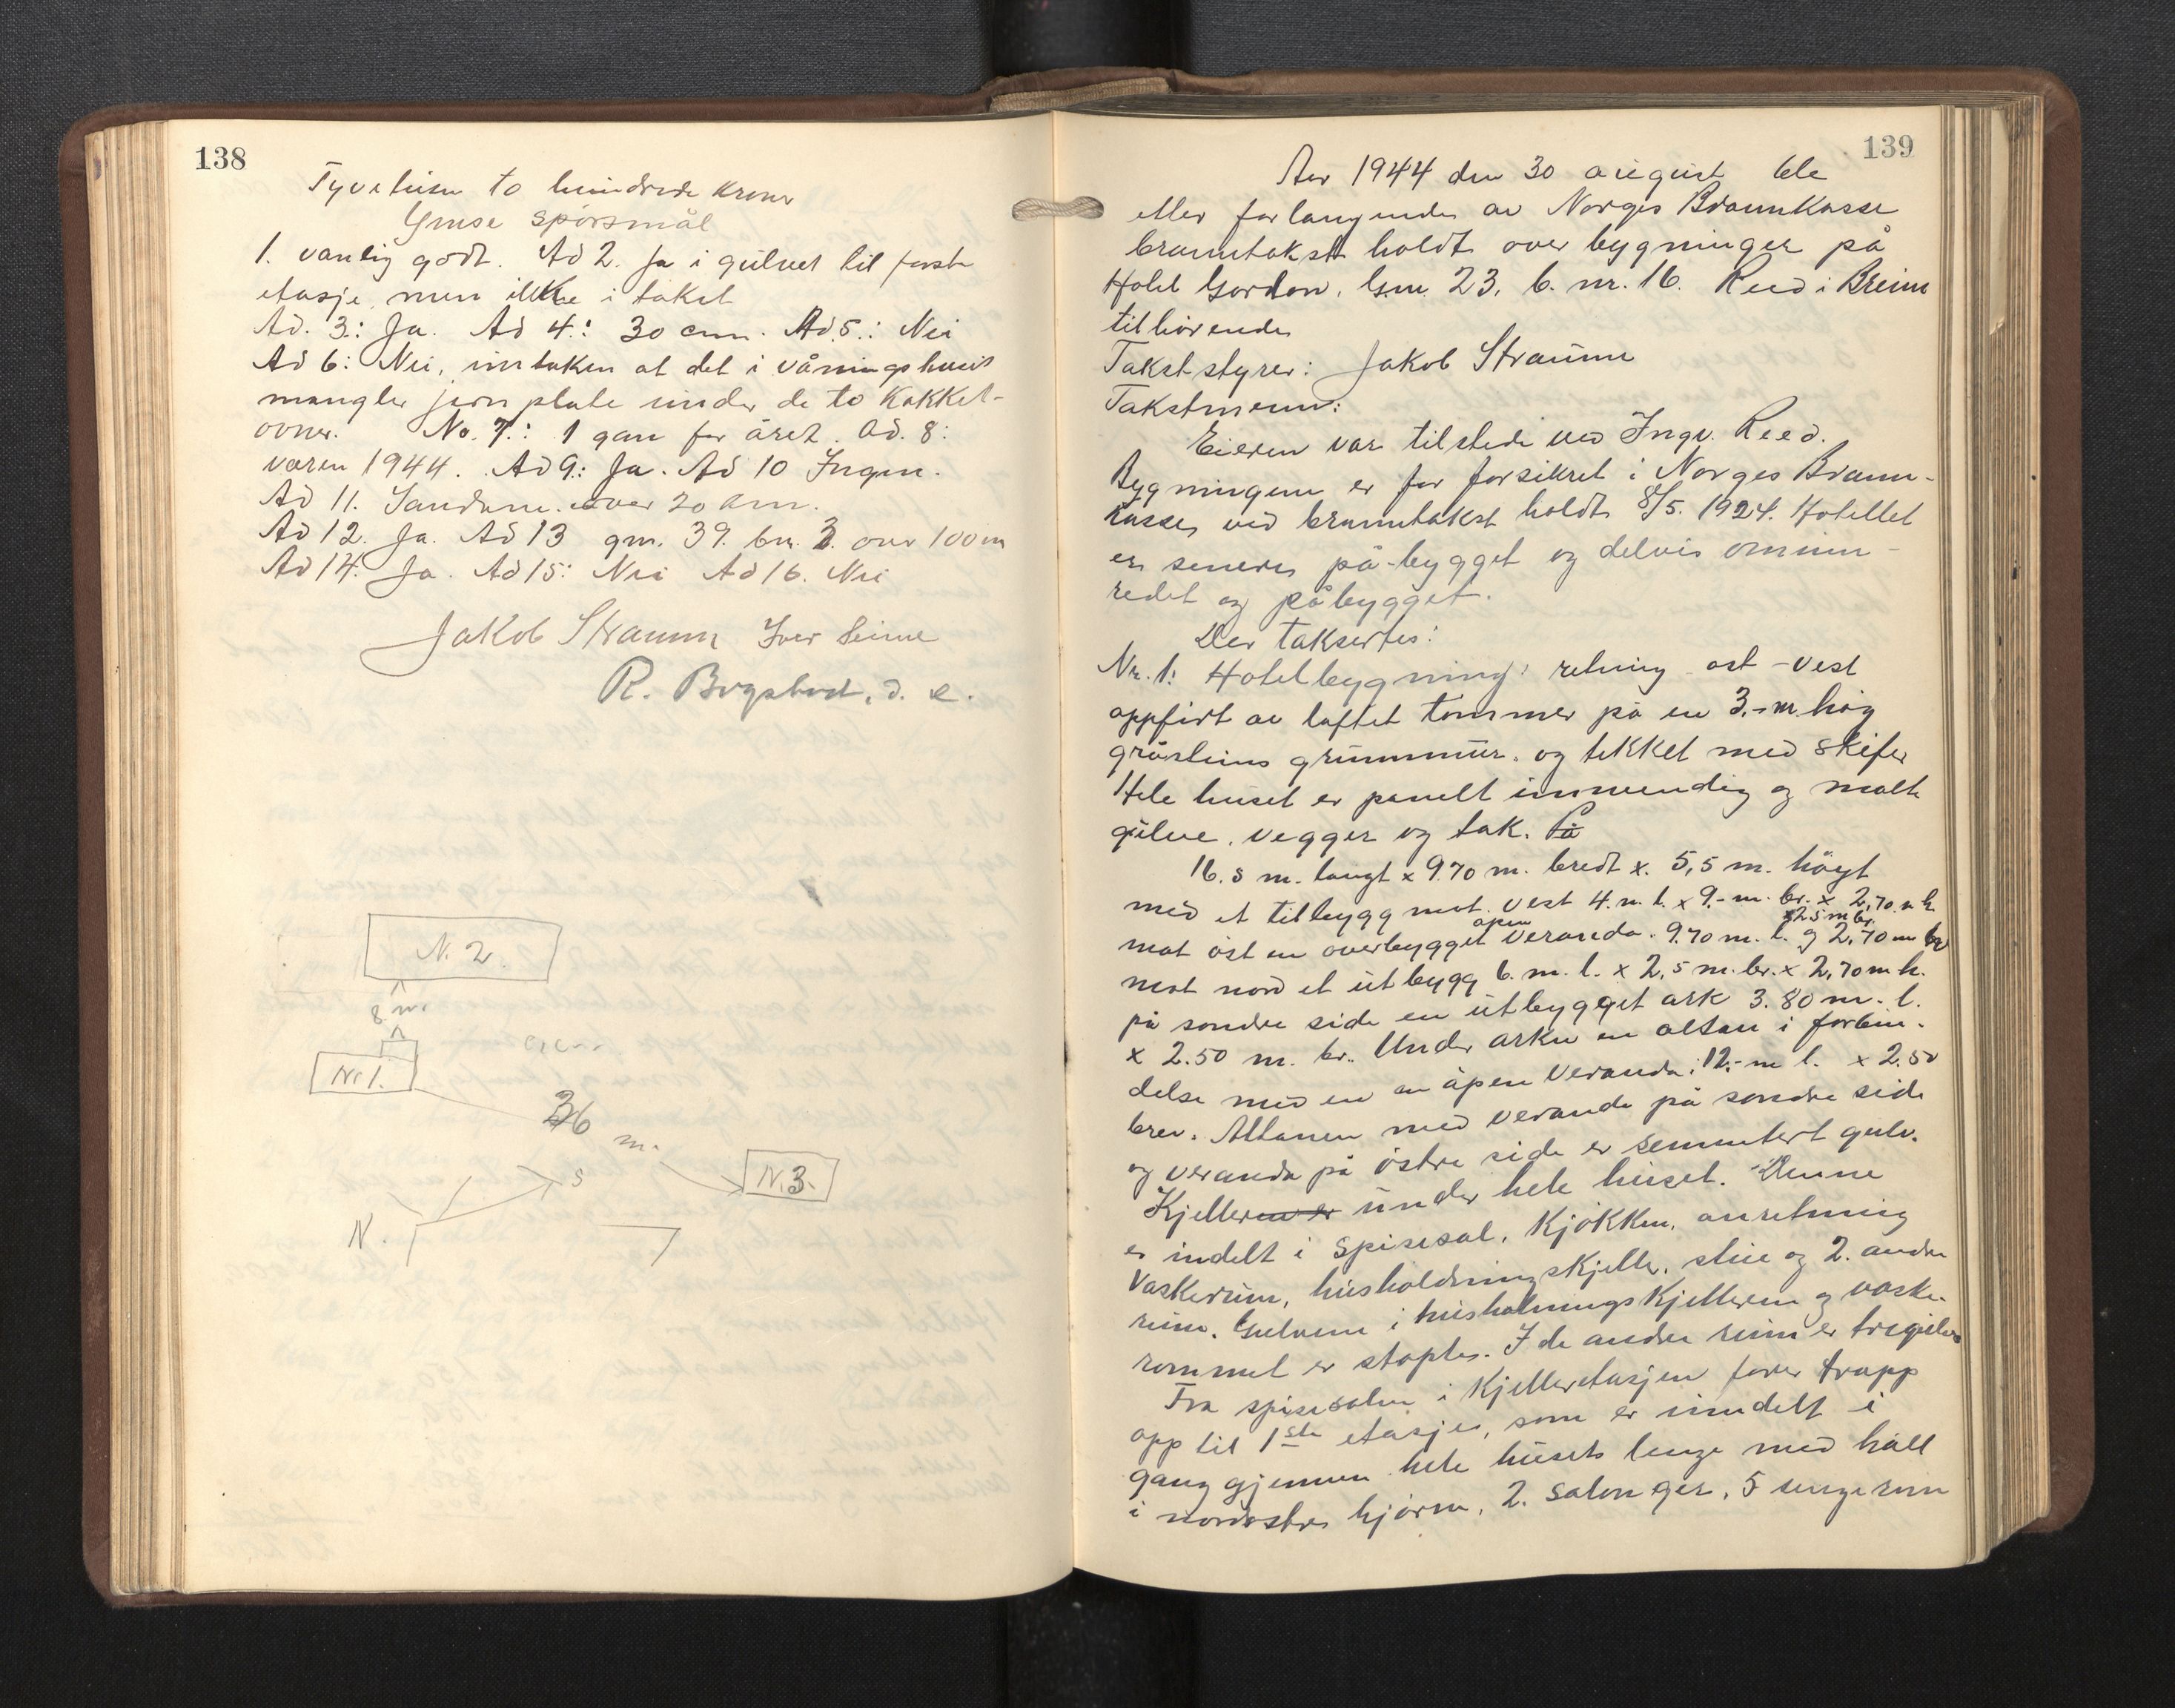 138
Tyvetusen to hundrede kroner
Gense spørsmål
1. vanlig godt. Ad 2. Ja i gulvet til første
etasje, men ikke i taket
Ad. 3.: Ja. Ad 4.: 30 cm. Ad. 5.: Nei
Ad 6: Nei, untaken at det i våningshuset
mangler jernplate under de to kakkel-
ovner. No. 7.: 1 gan for året. Ad. 8:
våren 1944. Ad 9.: Ja. Ad 10 Ingen.
Ad 11. Sandane. over 20 km.
Ad 12. Ja. Ad 13 gm. 39. bn. 3. over 100 m
Ad 14. Ja. Ad 15: Nei Ad 16. Nei
Jakob Straume Iver Seime
R. Bogstad. d. e.
N. 2.
8 m.
Nr 1.
36
m.
N. 3.
S
N.
139
Aar 1944 den 30 august ble
etter forlangende av Norges Brannkasse
branntakst holdt over bygninger på
Hotel Gordon, G.nr. 23, b. nr. 16. Reed i Breim
tilhørende
Takststyrer: Jakob Straume
Takstmenn:
Eieren var tilstede ved Ingv. Reed.
Bygningene er før forsikret i Norges Brann-
kasse, ved branntakst holdt 8/5. 1924. Hotellet
er senere på-bygget og delvis ominn-
redet og påbygget.
Der takseres:
Nr. 1: Hotelbygning: retning ost - vest
oppført av laftet tømmer på en 3.- m. høg
gråsteins grunnmur. og tekket med skifer
Hele huset er panelt innvendig og malte
gulve, vegger og tak. På
16.5 m. langt x 9.70 m. bredt x. 5,5 m. høyt
med et tilbygg mot vest 4. m. l. x 9.- m. br. x 2,70. m h.
mot øst en overbygget åpen veranda. 9.70 m. l. x 2.5 m br. og 2,70 m
mot nord et utbygg 6. m. l. x 2,5 m. br. x 2,70 m h.
på søndre side en utbygget ark 3.80 m. l.
x 2.50 m. br. Under arken en altan i forbin-
delse med en en åpen veranda: 12.- m l. x 2.50
bred. Altanen med veranda på søndre side
og veranda på østre side er sementert gulv.
Kjelleren er under hele huset. Denne
er indelt i spisesal, kjøkken, anretning
vaskerum, husholdningskjeller, stue og 2. andre
rum. Gulvene i husholningskjelleren og vaske-
rommet er støpte. I de andre rum er tregulve
Fra spisesalen i kjelleretasjen fører trapp
opp til 1ste etasje, som er inndelt i
gang gjennem hele husets lenge med hall
i nordøstre hjørne, 2. salonger, 5 senge rum